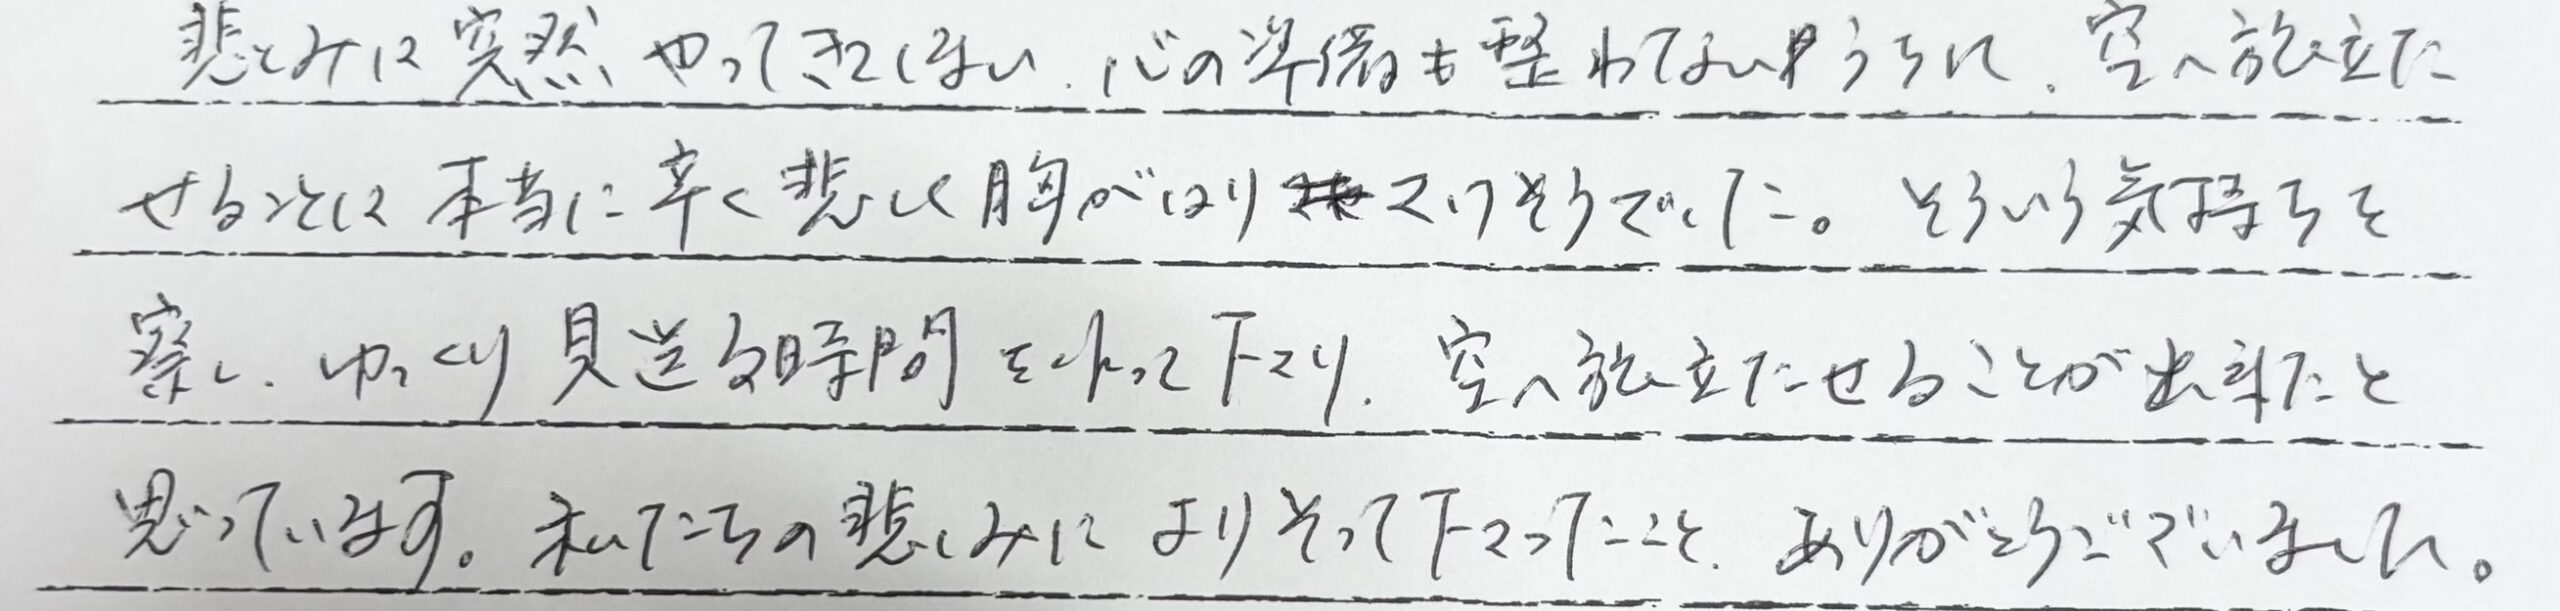 悲しみは突然やってきてしまい、心の準備も整わてないうちに、空へ旅立た
せることは本当に辛く悲しく胸がはりさけそうでした。そういう気持ちを
察し、ゆっくり見送る時間を作って下さり、空へ旅立たせることが出来たと
思っています。私たちの悲しみによりそって下さったこと、ありがとうございました。